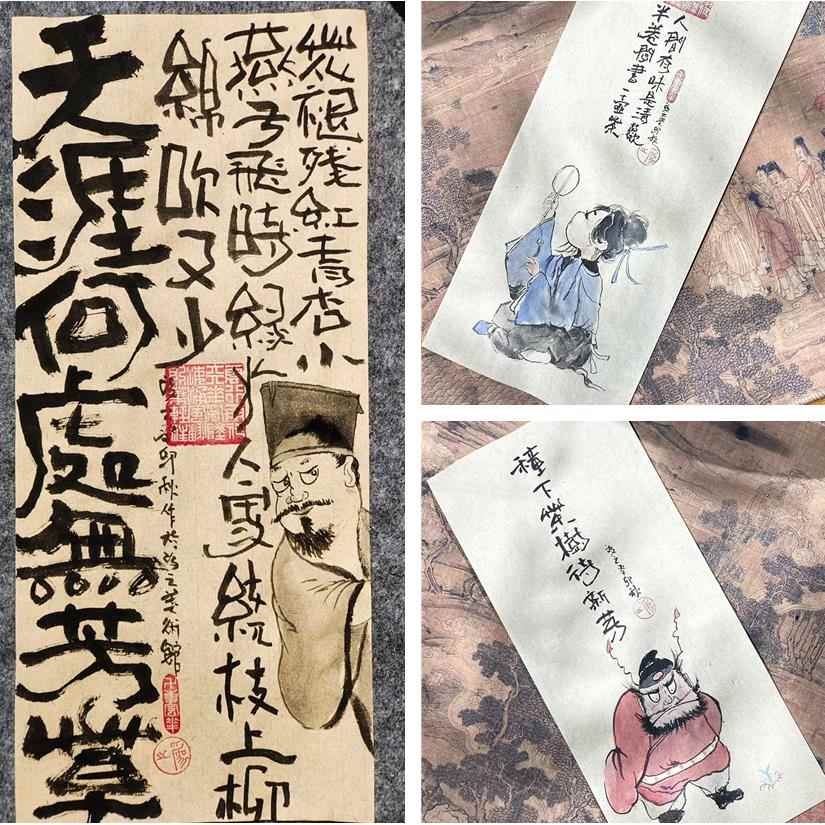 花褪殘紅青杏小
燕子飛時綠水人家繞枝上柳
綿吹又少
天涯何處無芳草
卯秋作於之藝術館
人間有味是清歡
半卷閒書一壺茶
種下樹待新芳
癸卯秋